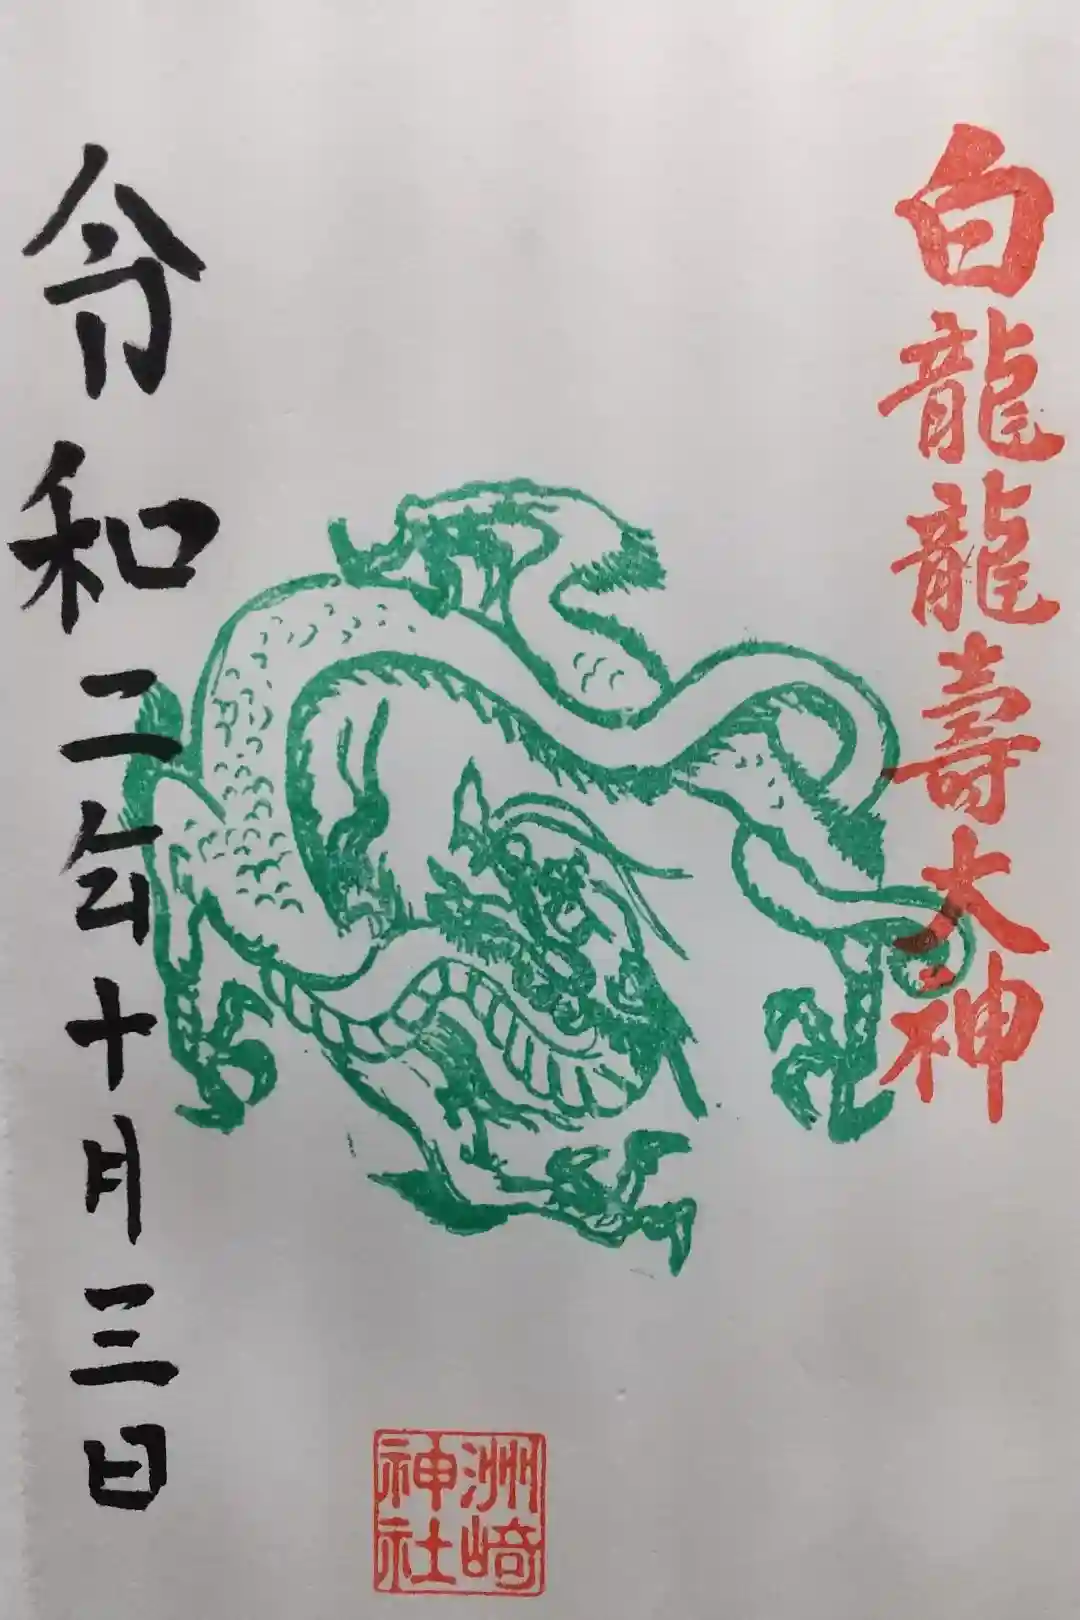 白龍龍壽大神
令和二年十月三日
洲崎
神社